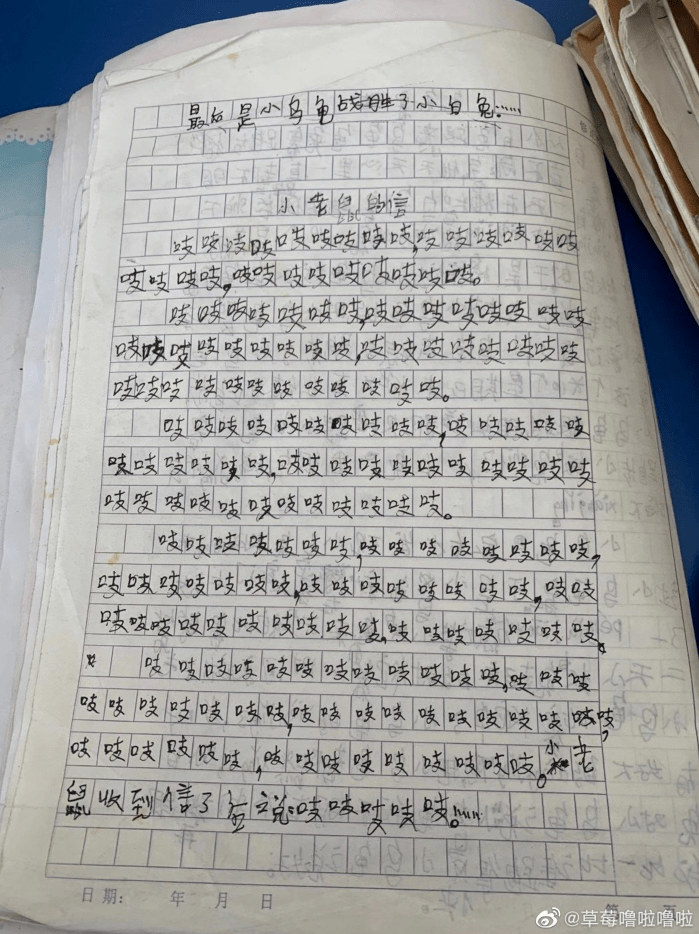 最后是小乌龟战胜了小白兔……
小老鼠的信
吱吱吱吱吱吱吱吱吱,吱吱吱吱吱吱
吱吱吱吱,吱吱吱吱吱吱吱吱吱。
吱吱吱吱吱吱吱,吱吱吱吱吱吱吱吱
吱吱吱吱吱吱吱吱吱,吱吱吱吱吱吱吱吱
吱吱吱吱吱吱吱吱吱吱吱吱。
吱吱吱吱吱吱吱吱吱吱,吱吱吱吱吱
吱吱吱吱吱吱,吱吱吱吱吱吱吱吱吱吱吱
吱吱吱吱吱吱吱吱吱吱吱吱。
吱吱吱吱吱吱吱,吱吱吱吱吱吱吱吱,
吱吱吱吱吱吱吱,吱吱吱吱吱吱吱吱,吱吱
吱吱吱吱吱吱吱吱吱吱,吱吱吱吱吱吱吱。
吱吱吱吱吱吱吱吱吱吱吱吱,吱吱吱
吱吱吱吱吱吱吱,吱吱吱吱吱吱吱吱吱吱吱,
吱吱吱吱吱吱,吱吱吱吱吱吱吱吱吱。小老
鼠收到信了说:吱吱吱吱吱。……
日期: 年 月 日
第 页
@草莓噜啦噜啦